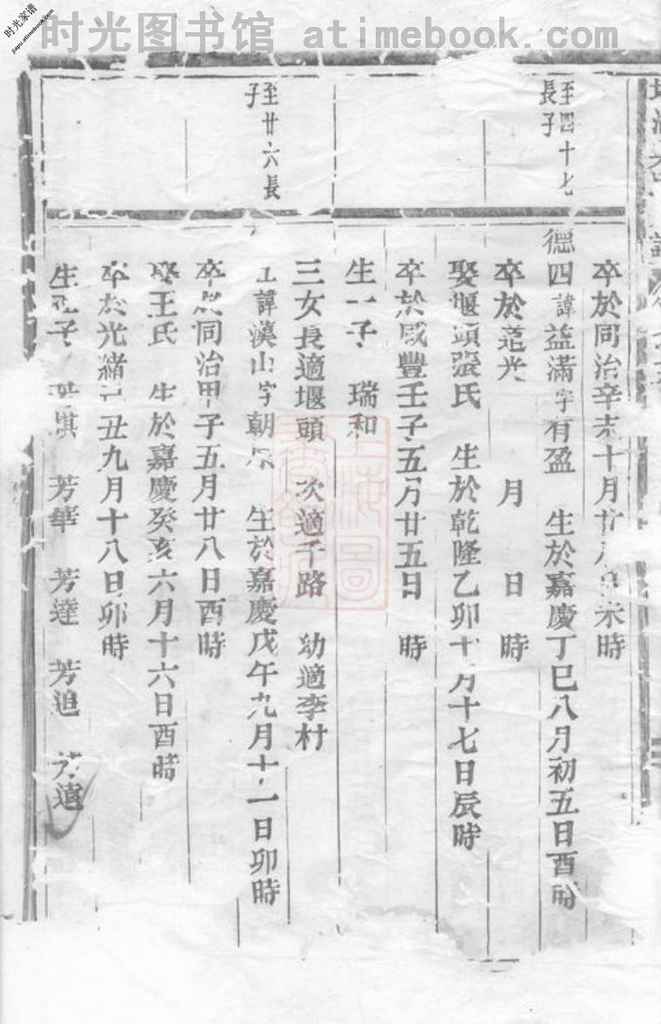 时光图书馆 atimebook.com
时光家谱
卒於同治辛未十月廿 未時
至四十七
長子
德四諱益滿字有盈 生於嘉慶丁巳八月初五日酉時
卒於道光 月 日 時
娶堰頭張氏 生於乾隆乙卯十 月十七日辰時
卒於咸豐壬子五月廿五日 時
生一子 瑞和
三女長適堰頭 次適千路 幼適李村
至廿六長
子
諱漢山字朝 生於嘉慶戊午九月十一日卯時
卒於同治甲子五月廿八日酉時
娶王氏 生於嘉慶癸亥六月十六日酉時
卒於光緒 丑九月十八日卯時
生 子 琪 芳華 芳達 芳追 芳遠